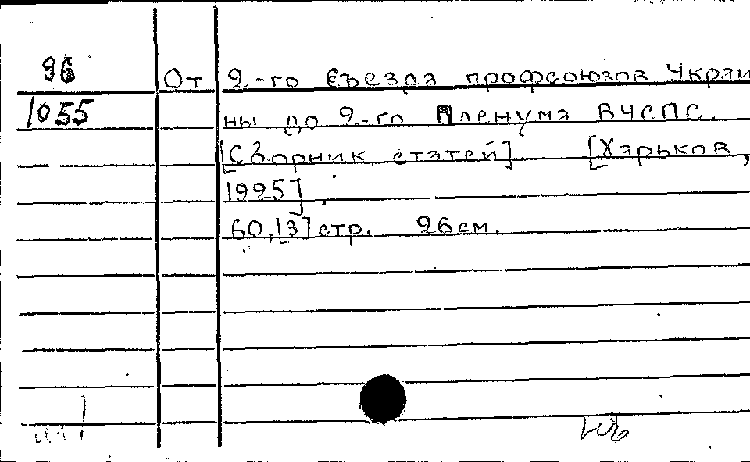 96 От 2.-го съезда профсоюзов Украи
1055 ны до 2-го Пленума ВУСПС.
[Сборник статей] [Харьков,
1925].
60,[3] стр. 26 см.